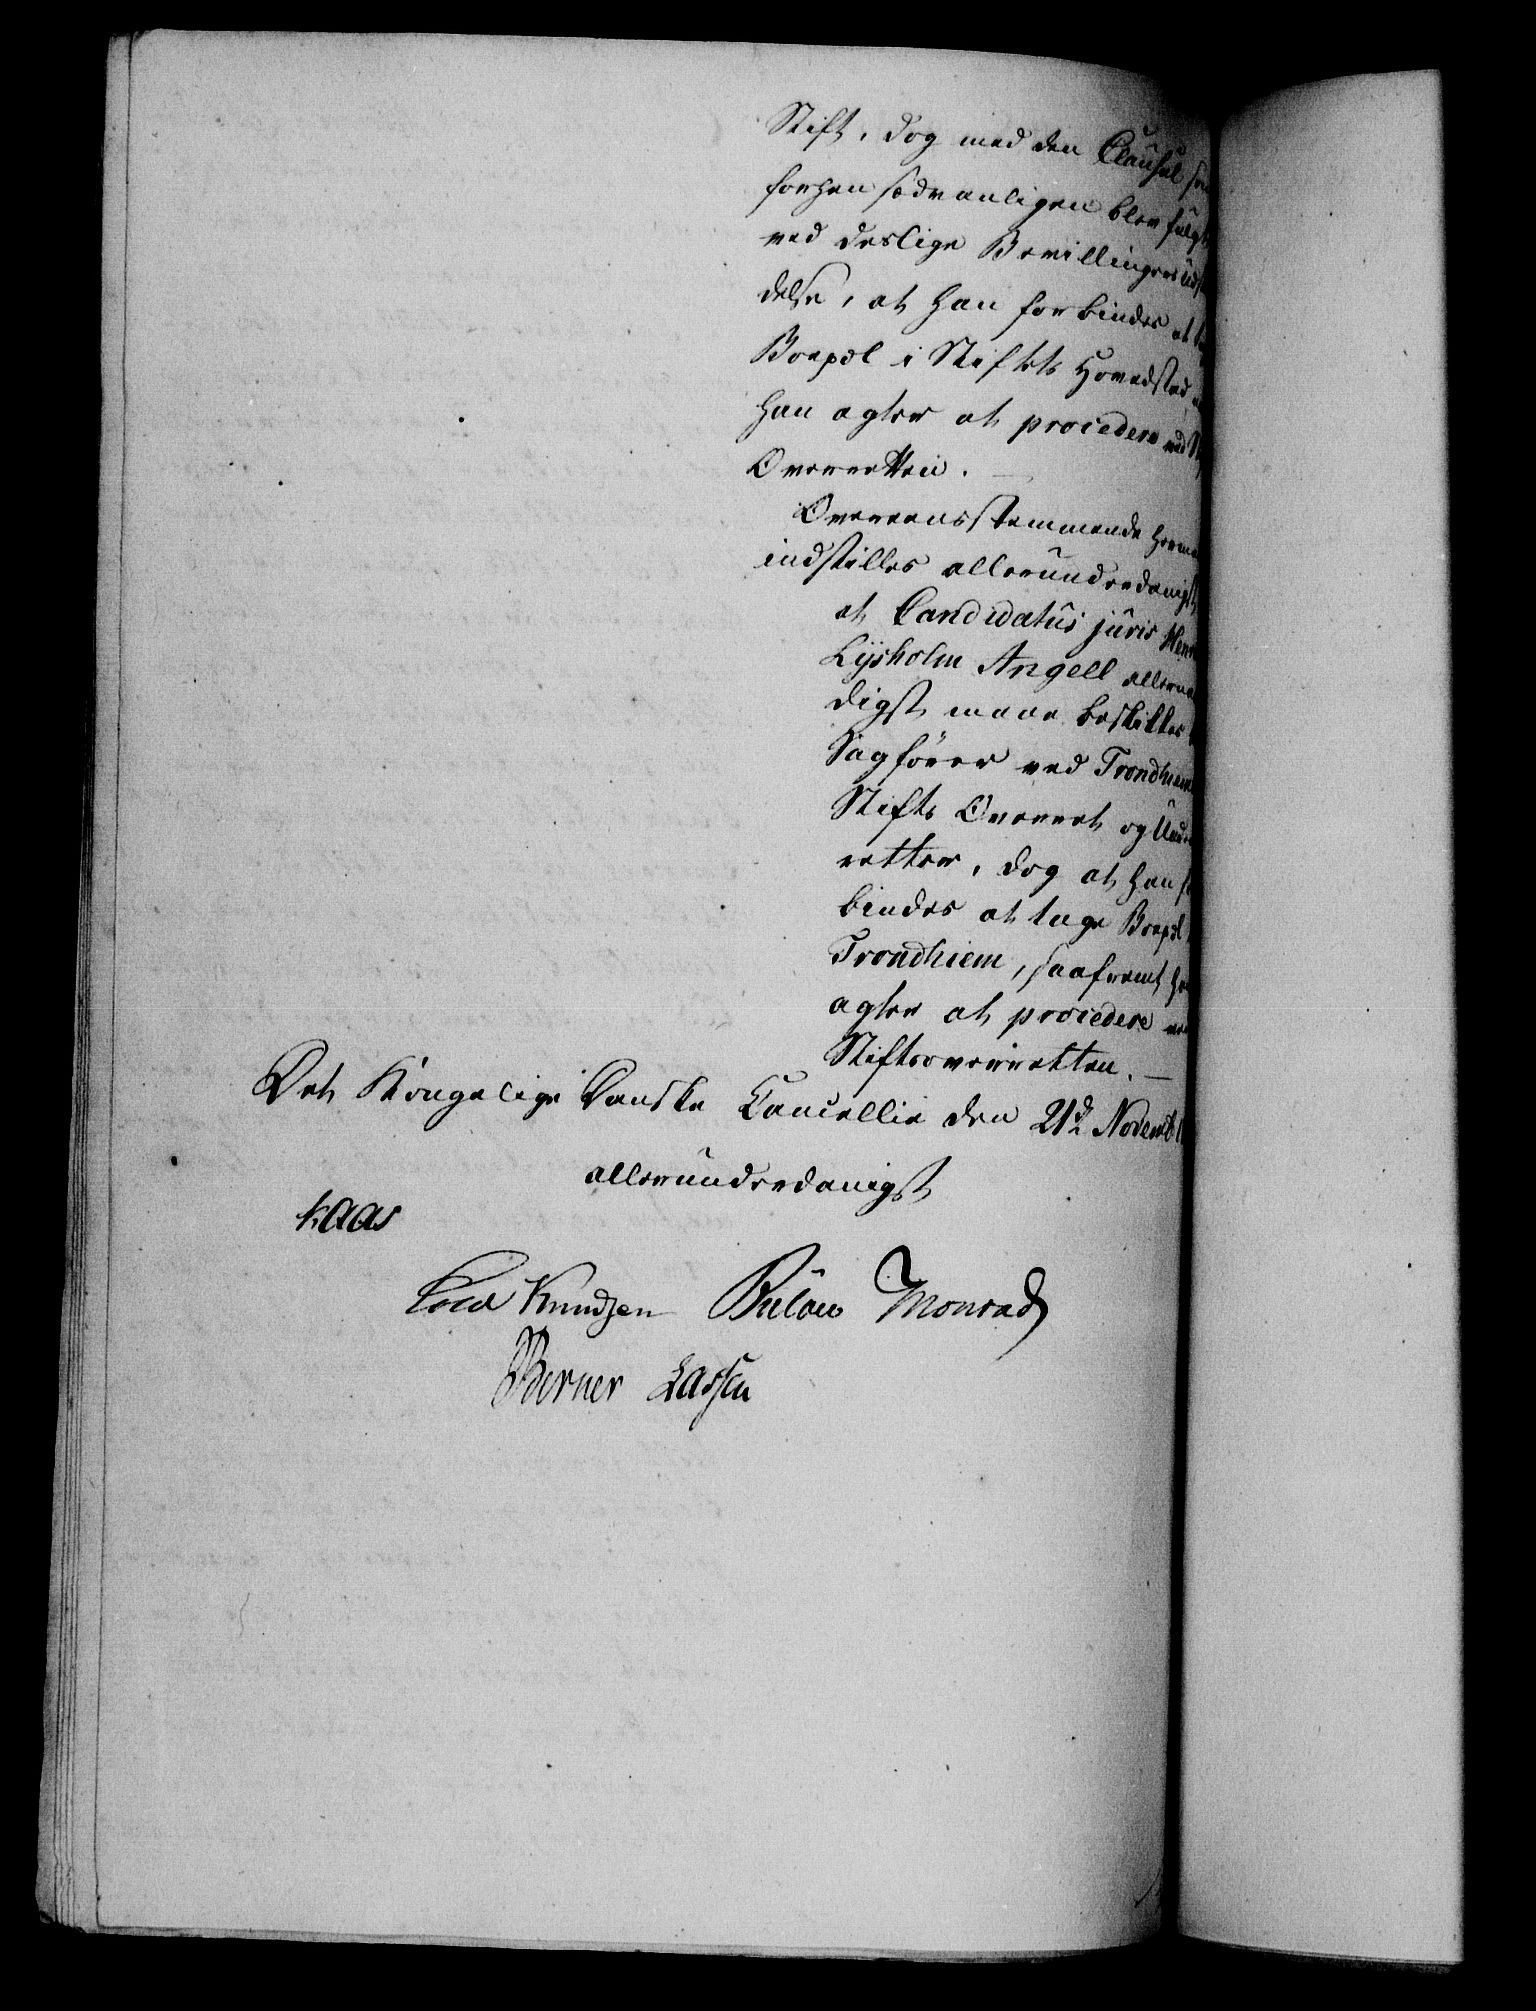 Stift, dog med den Clausul
forhen sædvanligen blev fulgt
ved deslige Bevillingers
delse, at han forbindes at
Boepæl i Stiftets Hovedsted
han agter at procedere ved
Overretten.
Overeensstemmende
indstilles allerunderdanigst
at Candidatus juris
Lysholm Angell
digst maae beskikkes
Sagfører ved
Stifts Overret og
retter, dog at han
bindes at tage Boepæl
Trondhiem, saafremt
agter at procedere
Stiftsoverretten.
Det Kongelige Danske Cancellie den 21de
allerunderdanigst
Kaas
Cold Knudsen Bülow Monrad
Berner Lassen